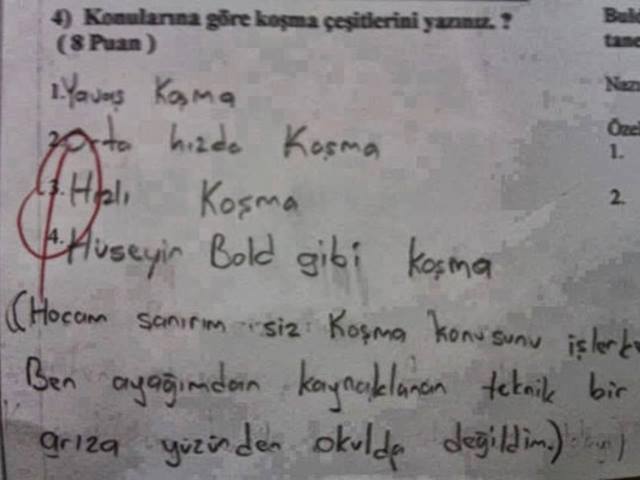 4) Konularına göre koşma çeşitlerini yazınız. ?
( 8 Puan )
1. Yavaş Koşma
2. Orta hızda Koşma
3. Hızlı Koşma
4. Hüseyin Bold gibi koşma
((Hocam sanırım siz Koşma konusunu işlerke
Ben ayağımdan kaynaklanan teknik bir
arıza yüzünden okulda değildim.)
Bul
tane
Naz
Öze
1.
2.